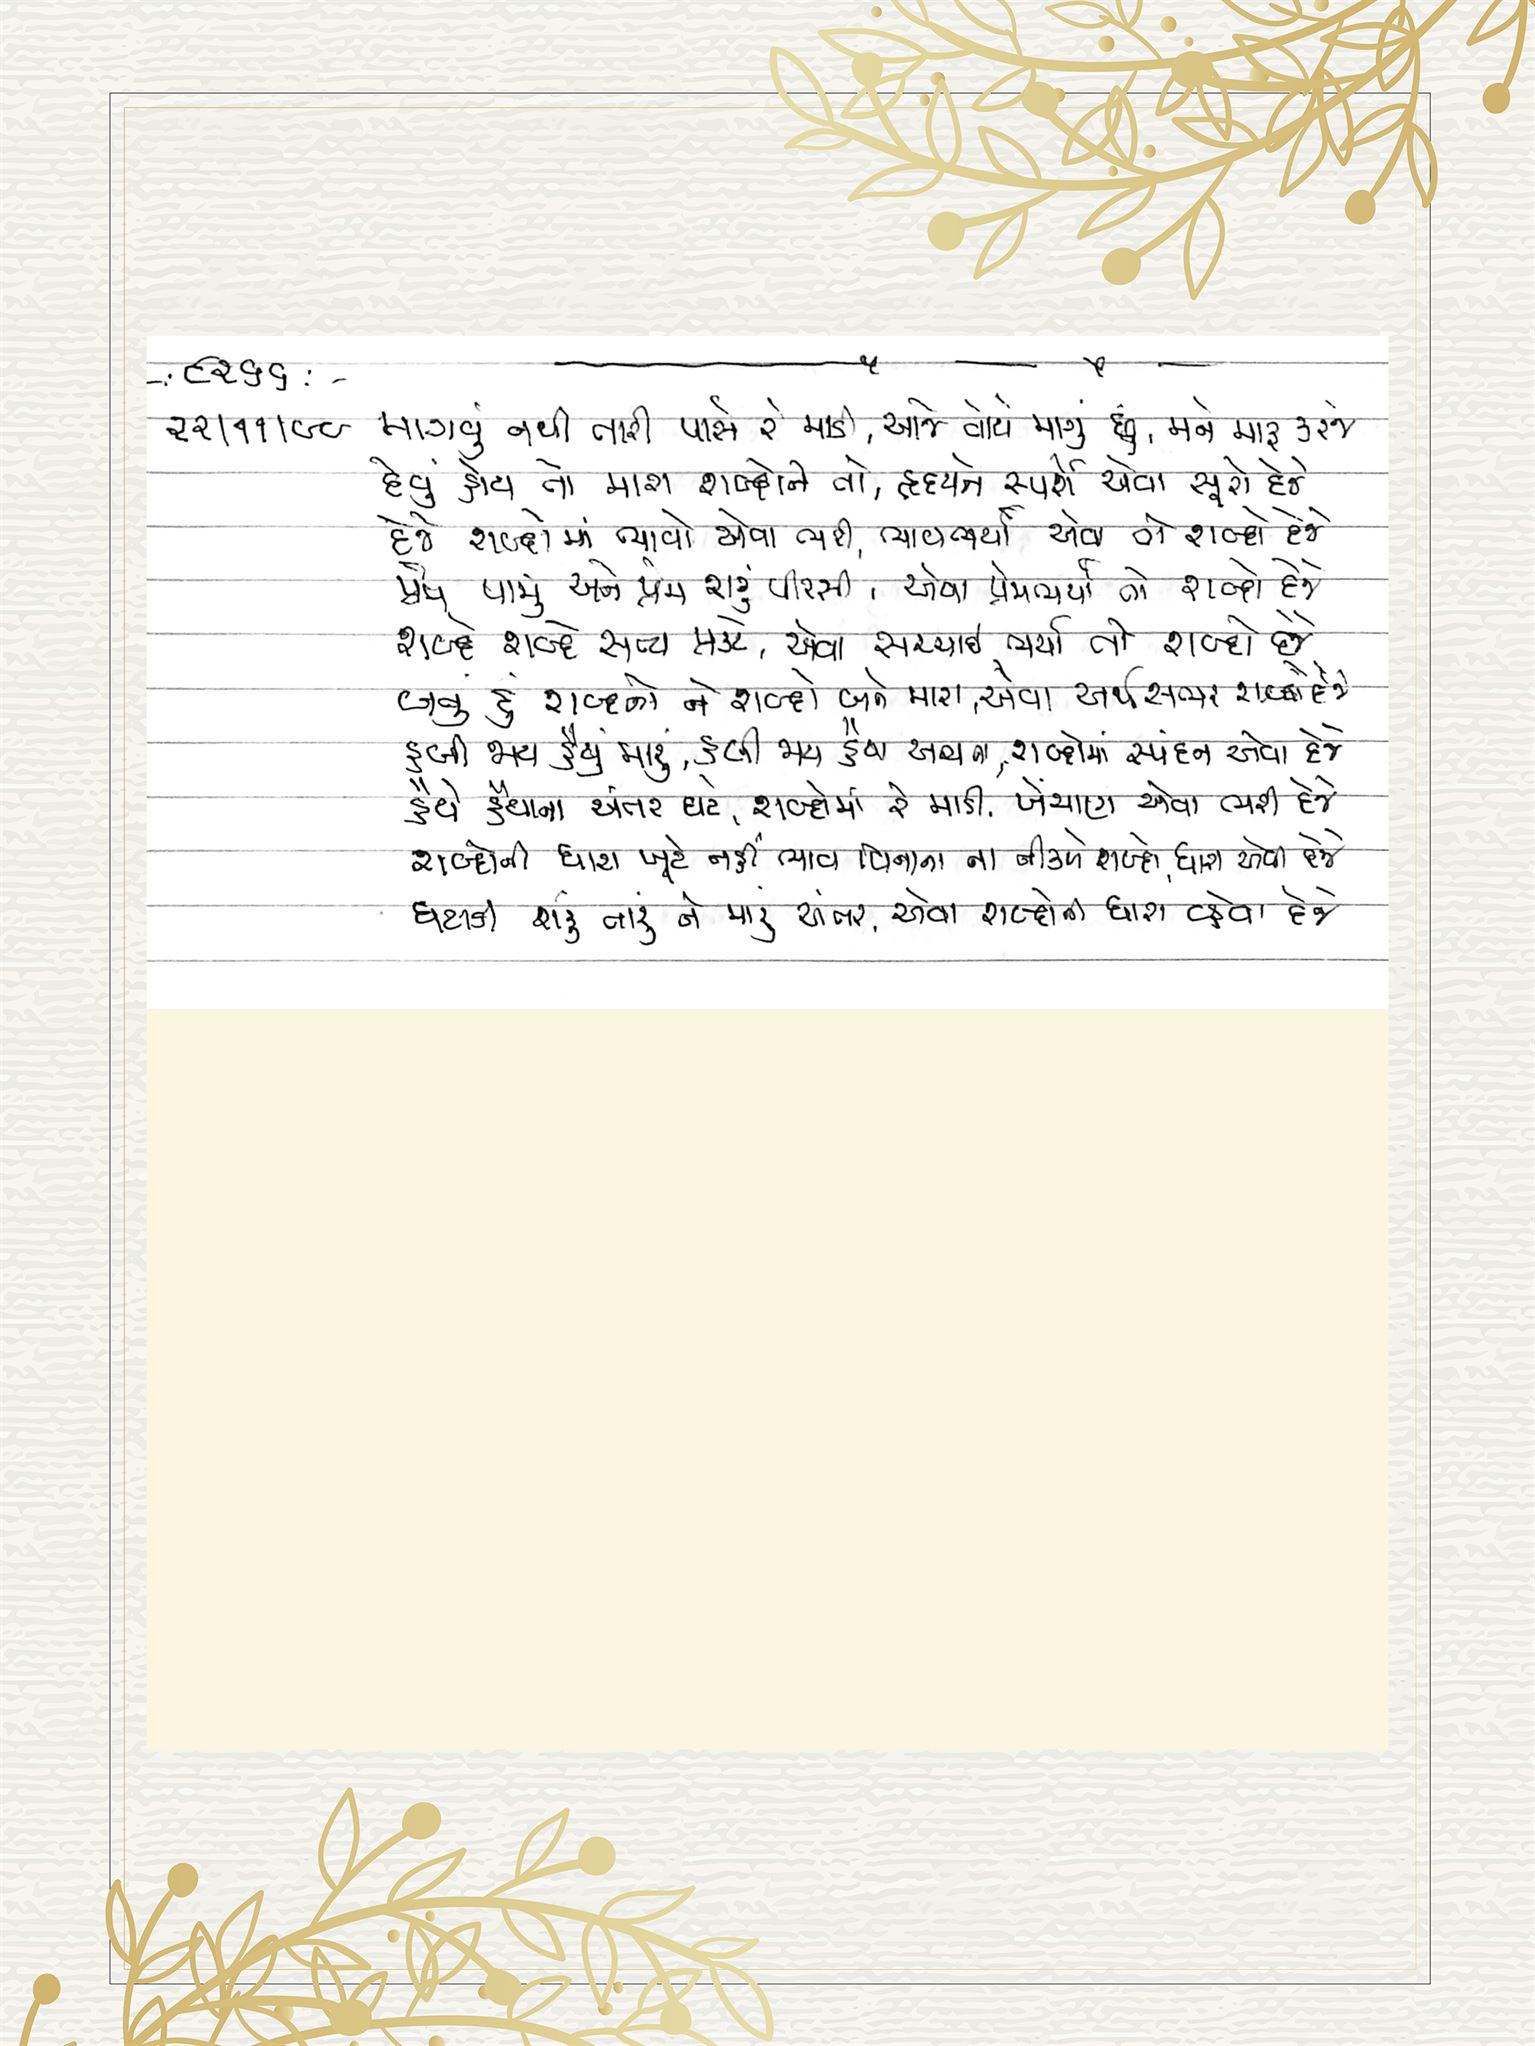 -: ૮૨૬૬ : -
૨૨|૧૧|૯૯ માગવું નથી તારી પાસે રે માડી, આજે તોયે માગું છું, મને માફ કરજે
દેવું હોય તો મારા શબ્દોને તો, હૃદયને સ્પર્શે એવા સૂરો દેજે
દેજે શબ્દોમાં ભાવો એવા ભરી, ભાવભર્યા એવા તો શબ્દો દેજે
પ્રેમ પામું અને પ્રેમ શકું પીરસી, એવા પ્રેમભર્યા તો શબ્દો દેજે
શબ્દે શબ્દે સત્ય પ્રકટે, એવા સચ્ચાઈ ભર્યા તો શબ્દો દેજે
બનું હું શબ્દનો ને શબ્દો બને મારા, એવા અર્થસભર શબ્દો દેજે
હલી જાય હૈયું મારું, હલી જાય હૈયા અન્યના, શબ્દોમાં સ્પંદન એવા દેજે
હૈયે હૈયાના અંતર ઘટે, શબ્દોમાં રે માડી, ખેંચાણ એવા ભરી દેજે
શબ્દોની ધારા ખૂટે નહીં ભાવ વિનાના ના નીકળે શબ્દો, ધારા એવી દેજે
ઘટાડી શકું તારું ને મારું અંતર, એવા શબ્દોની ધારા વહેવા દેજે